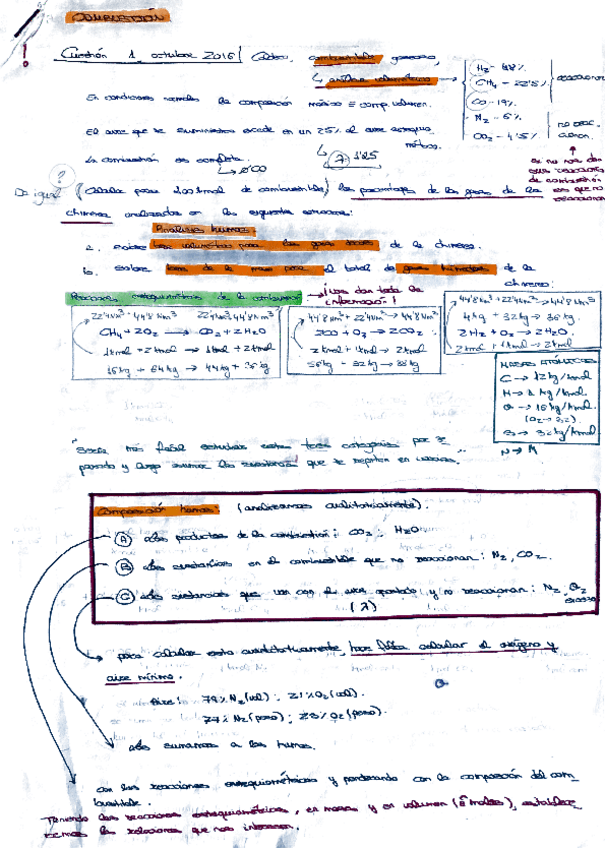 COMBUSTIÓN
Cuestión 1 octubre 2016 combustible gaseoso,
análisis volumétrico
H2 - 48%
CH4 - 22'5%
CO - 19%
N2 - 6%
CO2 - 4'5%
reaccionan
no reac.
cionan.
En condiciones normales la composición
El aire que se suministra excede en un 25% el aire estequio
métrico.
1'25
La combustión es completa.
combustión
reaccionan
De igual
(Calcular para 100 kmol de combustible) los porcentajes de los gases de la
chimenea, analizados en las siguientes
Productos humos
a. sobre base volumétrica para los gases secos de la chimenea.
b. sobre base de la masa para el total de gases húmedos de la
chimenea.
Reacciones estequiométricas de la combustión
¡Nos dan toda la
información!
22'4Nm³ + 44'8Nm³ 22'4Nm³ 44'8Nm³
CH4 + 2O2 → CO2 + 2H2O
1kmol + 2kmol → 1kmol + 2kmol
16kg + 64kg → 44kg + 36kg
44'8Nm³ + 22'4Nm³ → 44'8Nm³
2CO + O2 → 2CO2
2kmol + 1kmol → 2kmol
56kg + 32kg → 88kg
44'8Nm³ + 22'4Nm³ → 44'8Nm³
4kg + 32kg → 36kg
2H2 + O2 → 2H2O
2kmol + 1kmol → 2kmol
MASAS ATÓMICAS
C → 12kg/kmol
H → 1 kg/kmol
O → 16kg/kmol
(O2 → 32)
S → 32kg/kmol
"Suele más fácil estudiar estas tres categorías por se
parado y luego sumar las sustancias que se repiten en varias."
Composición humos: (analicemos cualitativamente).
A Los productos de la combustión: CO2, H2O
B Las sustancias en el combustible que no reaccionan: N2, CO2.
C Las sustancias que van con el aire aportado y no reaccionan: N2, O2
(λ)
exceso
para calcular esto cuantitativamente, hace falta calcular el oxígeno y
aire mínimo.
Aire: 79% N2 (vol); 21% O2 (vol).
77% N2 (peso); 23% O2 (peso).
Los sumamos a los humos.
Con las reacciones estequiométricas y ponderando con la composición del com
bustible.
Teniendo las reacciones estequiométricas, en masa y en volumen (ó moles), establece
remos las relaciones que nos interesen.